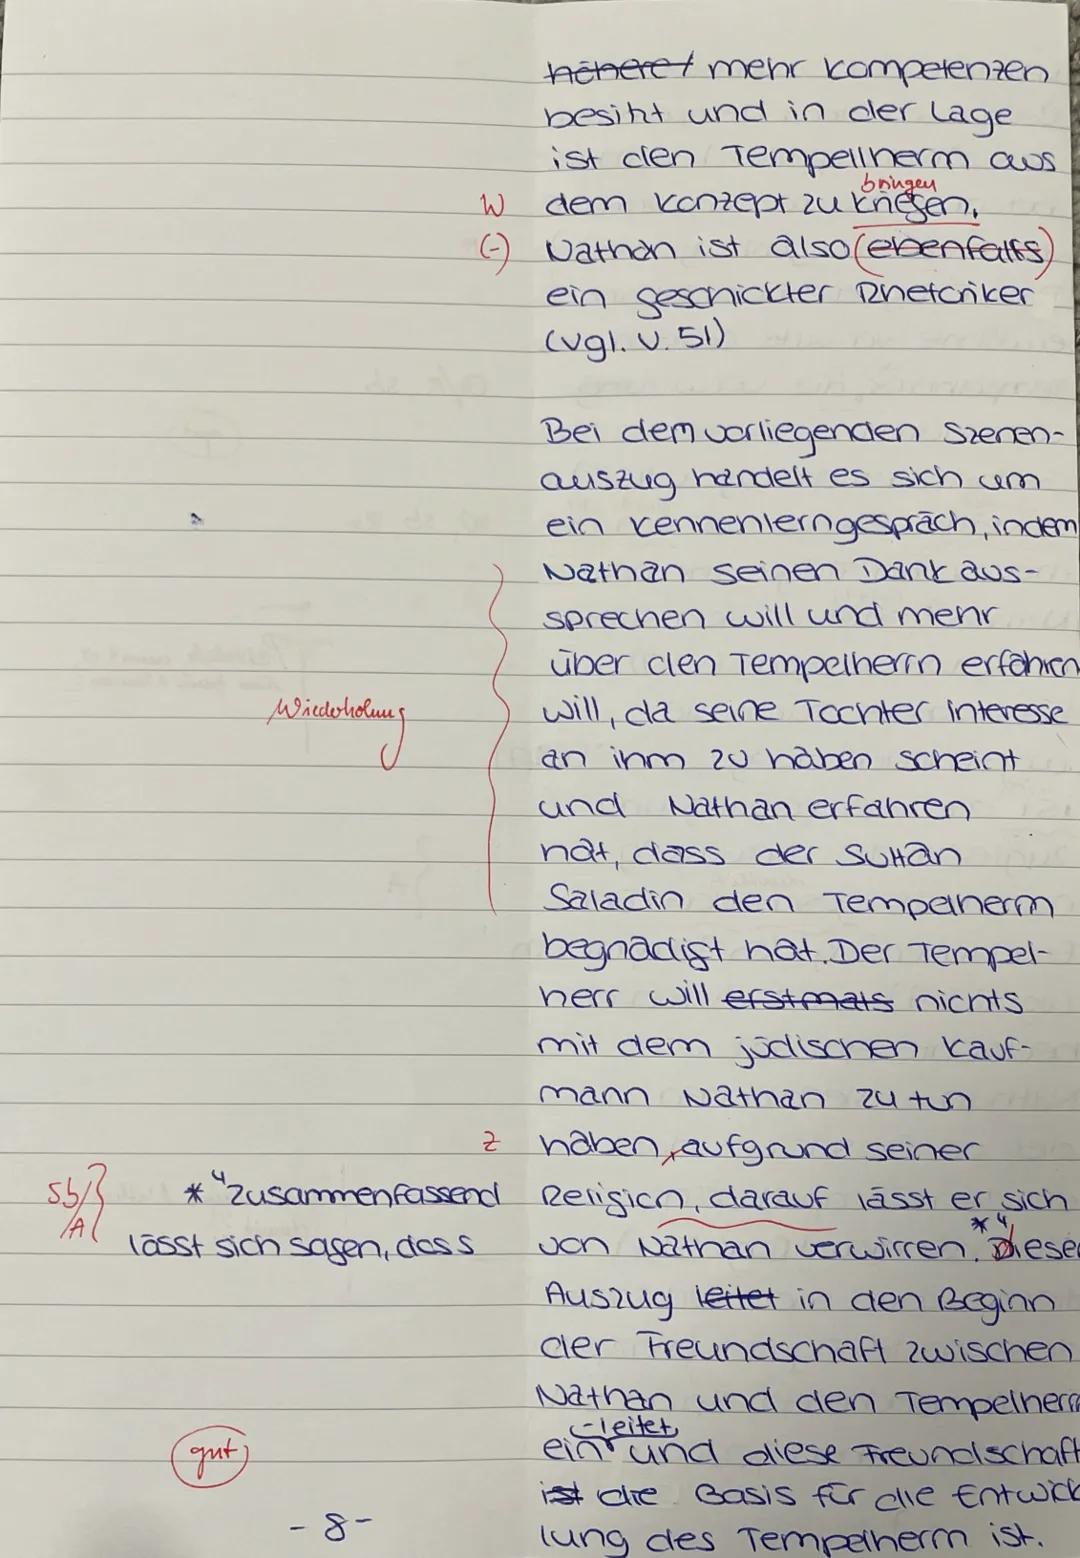 höhere mehr Kompetenzen
besitzt und in der Lage
ist den Tempellherrn aus
bringen
W dem Konzept zu kriegen.
(-) Nathan ist also (ebenfalls)
ein geschickter Rhetoriker
(vgl. V. 51)
Bei dem vorliegenden Szenen-
auszug handelt es sich um
ein Kennenlerngespräch, indem
Nathan seinen Dank aus-
sprechen will und mehr
über den Tempelherrn erfahren
Wiederholung will, da seine Tochter Interesse
an ihm zu haben scheint
und Nathan erfahren
hat, dass der Sultan
Saladin den Tempelherrn
begnadigt hat. Der Tempel-
herr will erstmals nichts
mit dem jüdischen Kauf-
mann Nathan zu tun
Z haben, aufgrund seiner
Sb/A *4 zusammenfassend
lässt sich sagen, dass
Religion, darauf lässt er sich
von Nathan verwirren. *4 Dieser
Auszug leitet in den Beginn
der Freundschaft zwischen
Nathan und den Tempelherrn
-leitet
ein und diese Freundschaft
gut
ist die Basis für die Entwick
lung des Tempelherrn ist.
-8-